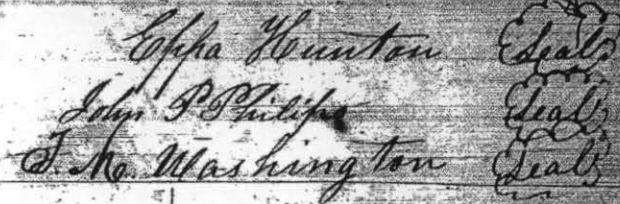 Eppa Hunton (Seal)
John P Philips (Seal)
T. M. Washington (Seal)